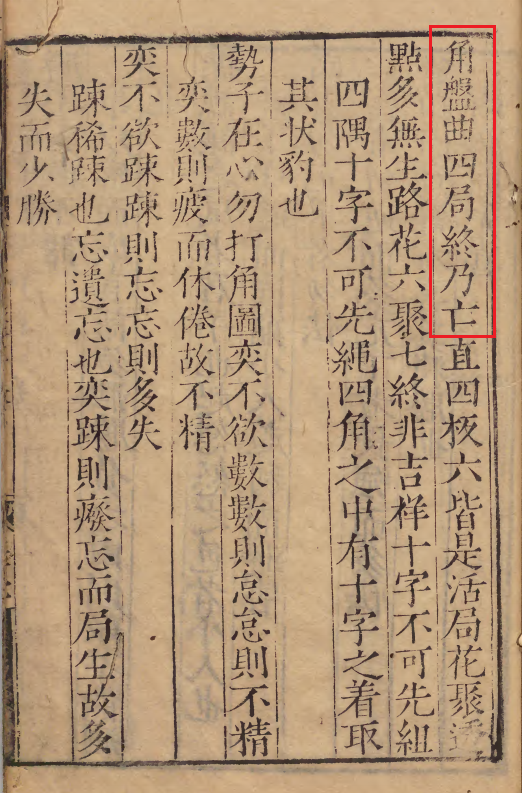 角盤曲四局終乃亡直四板六皆是活局花聚透
點多無生路花六聚七終非吉祥十字不可先組
四隅十字不可先繩四角之中有十字之着取
其状豹也
勢子在心勿打角圖奕不欲數數則怠怠則不精
奕數則疲而休倦故不精
奕不欲踈踈則忘忘則多失
踈稀踈也忘遺忘也奕踈則癈忘而局生故多
失而少勝